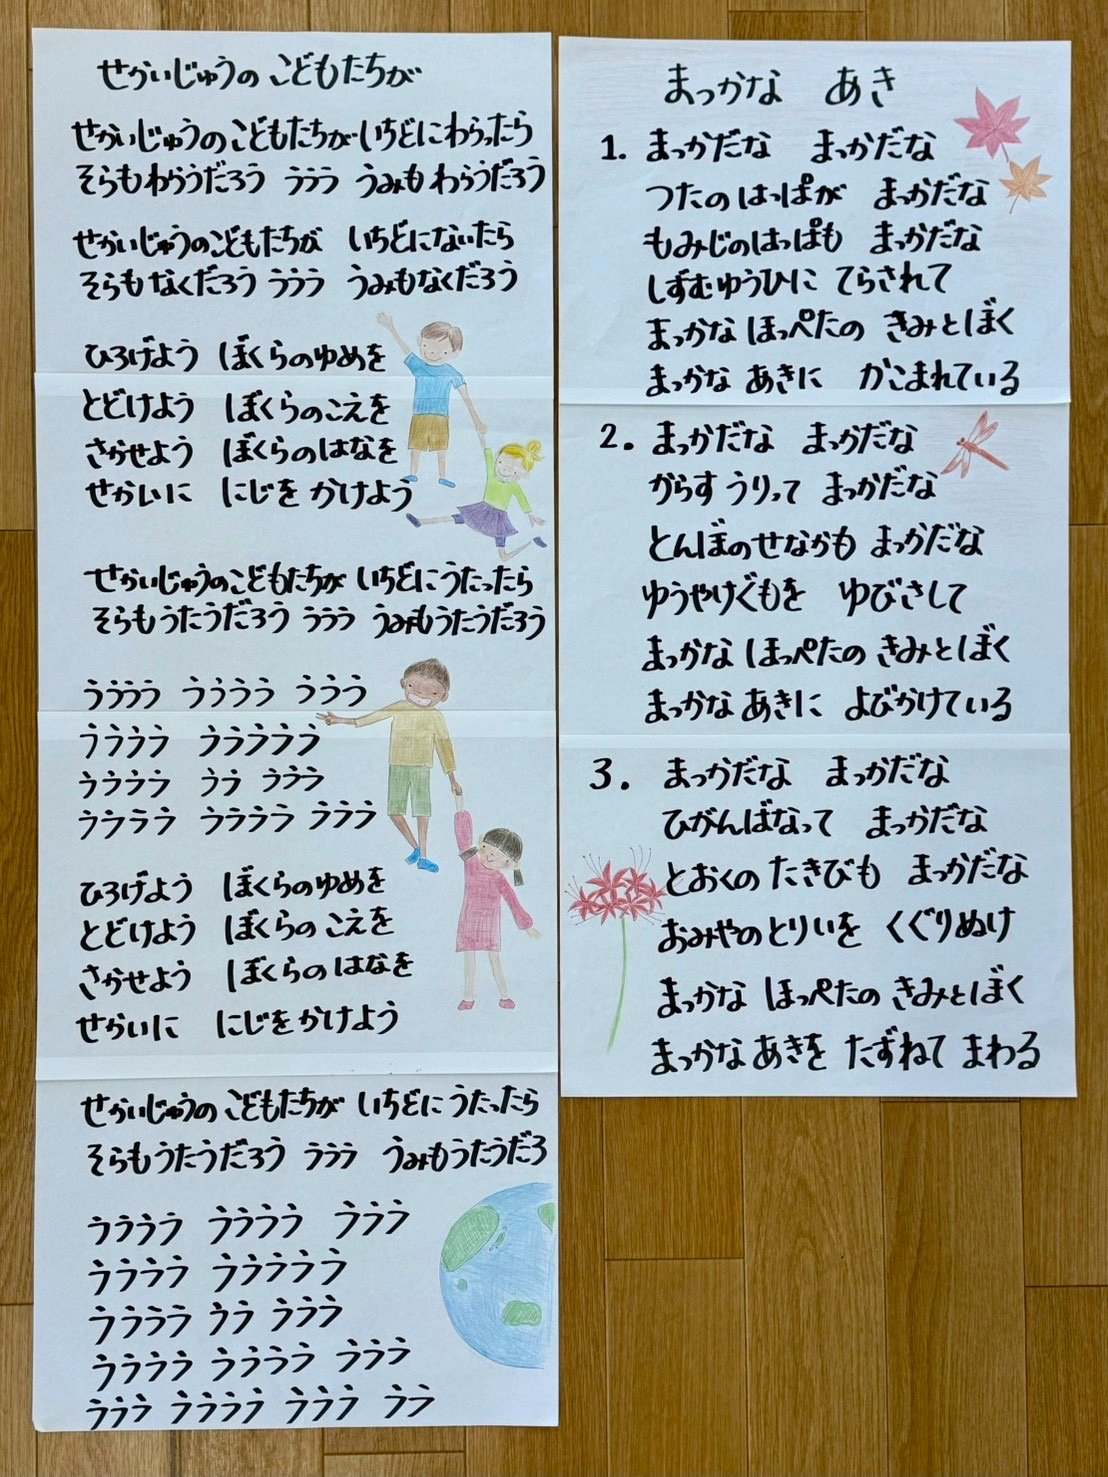 せかいじゅうの こどもたちが
せかいじゅうの こどもたちが いちどにわらったら
そらもわらうだろう ラララ うみもわらうだろう
せかいじゅうのこどもたちが いちどにないたら
そらもなくだろう ラララ うみもなくだろう
ひろげよう ぼくらのゆめを
とどけよう ぼくらのこえを
さかせよう ぼくらのはなを
せかいに にじを かけよう
せかいじゅうのこどもたちが いちどにうたったら
そらもうたうだろう ラララ うみもうたうだろう
ララララ ララララ ラララ
ララララ ラララララ
ララララ ララ ラララ
ララララ ララララ ラララ
ひろげよう ぼくらのゆめを
とどけよう ぼくらの こえを
さかせよう ぼくらの はなを
せかいに にじを かけよう
せかいじゅうの こどもたちが いちどに うたったら
そらもうたうだろう ラララ うみもうたうだろ
ララララ ララララ ラララ
ララララ ラララララ
ララララ ララ ラララ
ララララ ララララ ラララ
ラララ ララララ ラララ ララ
まっかな あき
1. まっかだな まっかだな
つたの はっぱが まっかだな
もみじのはっぱも まっかだな
しずむゆうひに てらされて
まっかな ほっぺたの きみとぼく
まっかな あきに かこまれている
2. まっかだな まっかだな
からすうりって まっかだな
とんぼのせなかも まっかだな
ゆうやけぐもを ゆびさして
まっかな ほっぺたの きみとぼく
まっかな あきに よびかけている
3. まっかだな まっかだな
ひがんばなって まっかだな
とおくの たきびも まっかだな
おみやのとりいを くぐりぬけ
まっかな ほっぺたの きみとぼく
まっかな あきを たずねて まわる